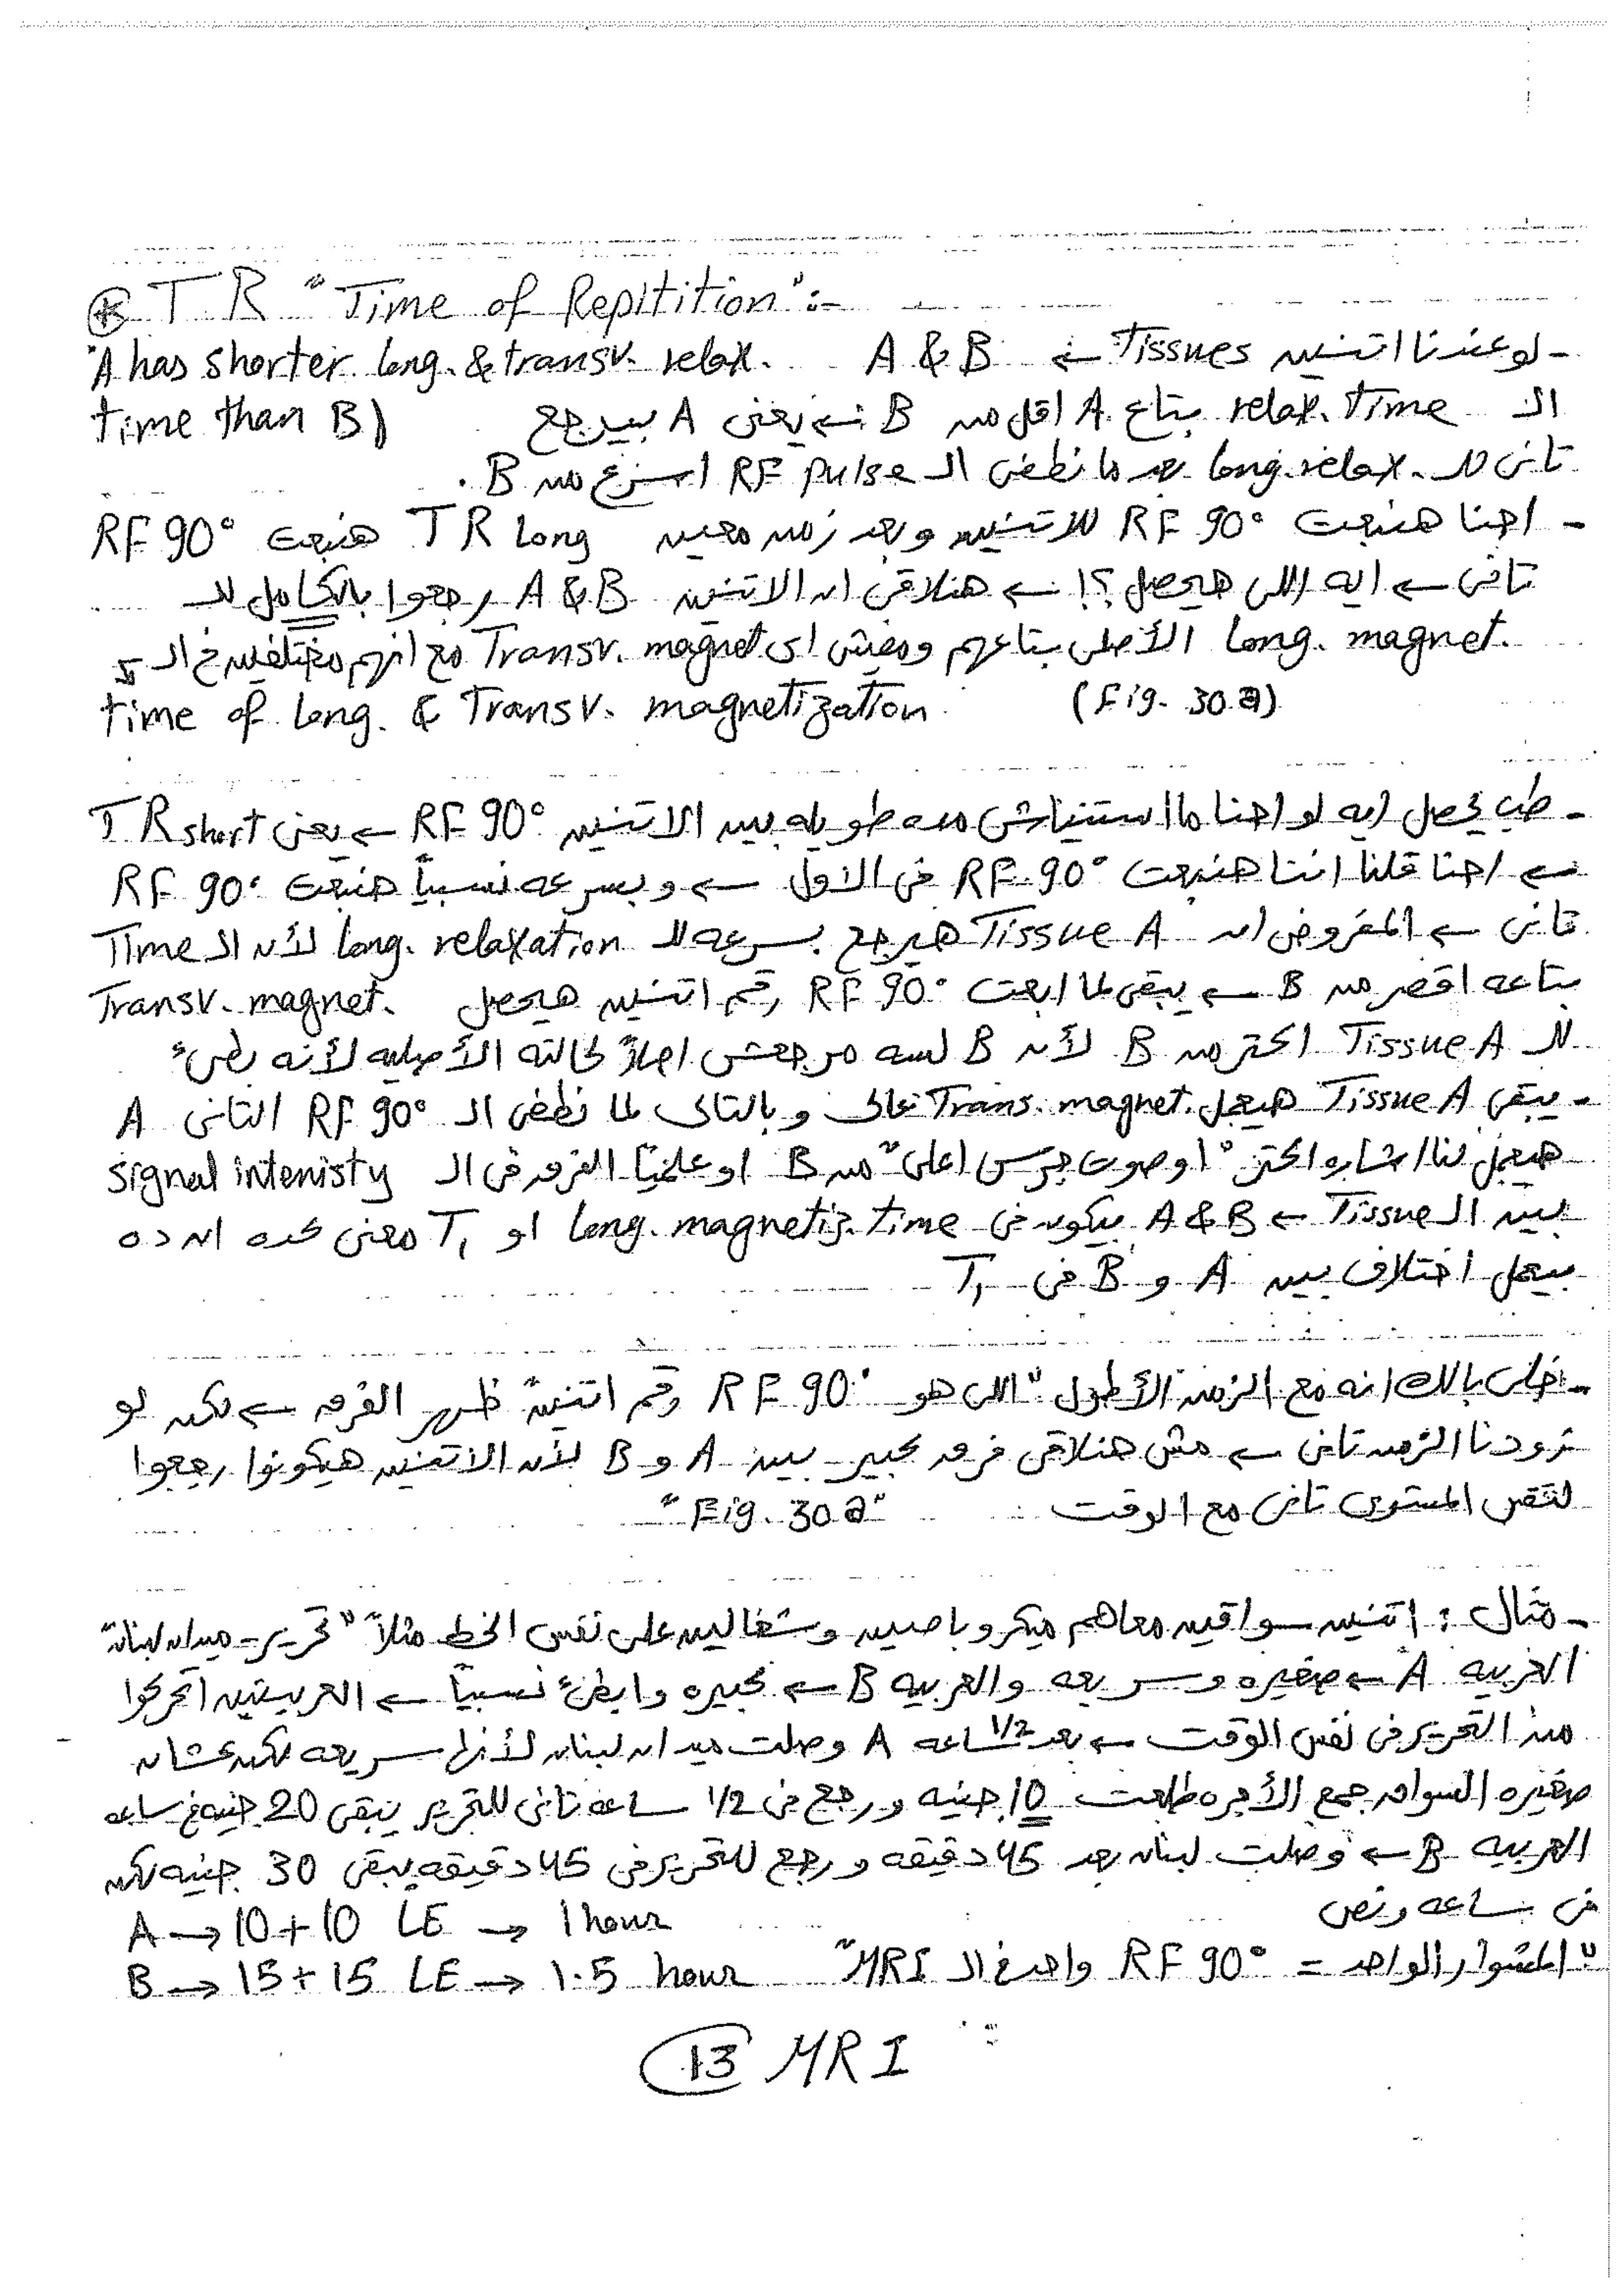 * TR "Time of Repitition" :-
- لو عندنا اتنين Tissues ← A & B "A has shorter long. & transv. relax.
الـ relax. time بتاع A اقل من B ← يعنى A بيرجع time than B)
تانى للـ long. relax. بعد ما نطفى الـ RF pulse اسرع من B .
- احنا هنبعت RF 90° للاتنين وبعد زمن معين TR Long هنبعت RF 90°
تانى ← ايه اللى هيحصل ؟! ← هنلاقى ان الاتنين A & B رجعوا بالكامل للـ
Long. magnet. الأصلى بتاعهم ومفيش اى Transv. magnet مع انهم مختلفين فى الـ
time of long. & Transv. magnetization (Fig. 30 a)
- طب يحصل ايه لو احنا ما استنيناش مده طويله بين الاتنين RF 90° ← يعنى TR short
← احنا قلنا اننا هنبعت RF 90° فى الاول ← وبسرعه نسبياً هنبعت RF 90°
تانى ← المفروض ان Tissue A هيرجع بسرعه للـ long. relaxation لأن الـ Time
بتاعه اقصر من B ← يبقى لما ابعت RF 90° رقم اتنين هيحصل Transv. magnet.
للـ Tissue A اكتر من B لأن B لسه مرجعش اصلاً لحالته الأصليه لأنه بطىء
- يبقى Tissue A هيعمل Trans. magnet. عالى وبالتالى لما نطفى الـ RF 90° التانى A
هيعمل لنا اشاره اكتر "او صوت جرس اعلى" من B او علمياً الفرق فى الـ signal intenisty
بين الـ Tissue ← A & B بيكون فى long. magnetiz. time او T1 معنى كده ان ده
بيعمل اختلاف بين A و B فى T1
- خلى بالك انه مع الزمن الأطول "اللى هو RF 90° رقم اتنين" ظهر الفرق ← لكن لو
زودنا الزمن تانى ← مش هنلاقى فرق كبير بين A و B لأن الاتنين هيكونوا رجعوا
لنفس المستوى تانى مع الوقت "Fig. 30 a"
- مثال : اتنين سواقين معاهم ميكروباصين وشغالين على نفس الخط مثلاً "تحرير - ميدان لبنان"
العربيه A ← صغيره وسريعه والعربيه B ← كبيره وابطئ نسبياً ← العربيتين اتحركوا
من التحرير فى نفس الوقت ← بعد 1/2 ساعه A وصلت ميدان لبنان لأنها سريعه لكن عشان
صغيره السواق جمع الأجره طلعت 10 جنيه ورجع فى 1/2 ساعه تانى للتحرير يبقى 20 جنيه فى ساعه
العربيه B ← وصلت لبنان بعد 45 دقيقه ورجع للتحرير فى 45 دقيقه يبقى 30 جنيه لكن
فى ساعه ونص
A → 10 + 10 LE → 1 hour
B → 15 + 15 LE → 1.5 hour "المشوار الواحد = RF 90° واحد فى الـ MRI"
13 MRI